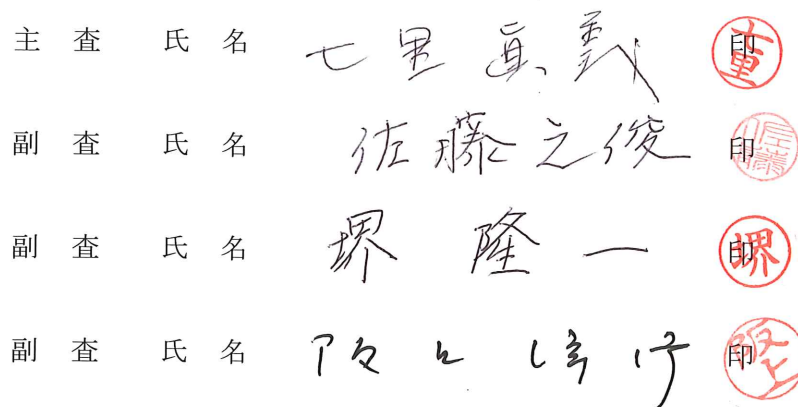 主 査 氏 名 七里 眞義 印 七里
副 査 氏 名 佐藤之俊 印 佐藤
副 査 氏 名 堺 隆一 印 堺
副 査 氏 名 阪上 印 阪上